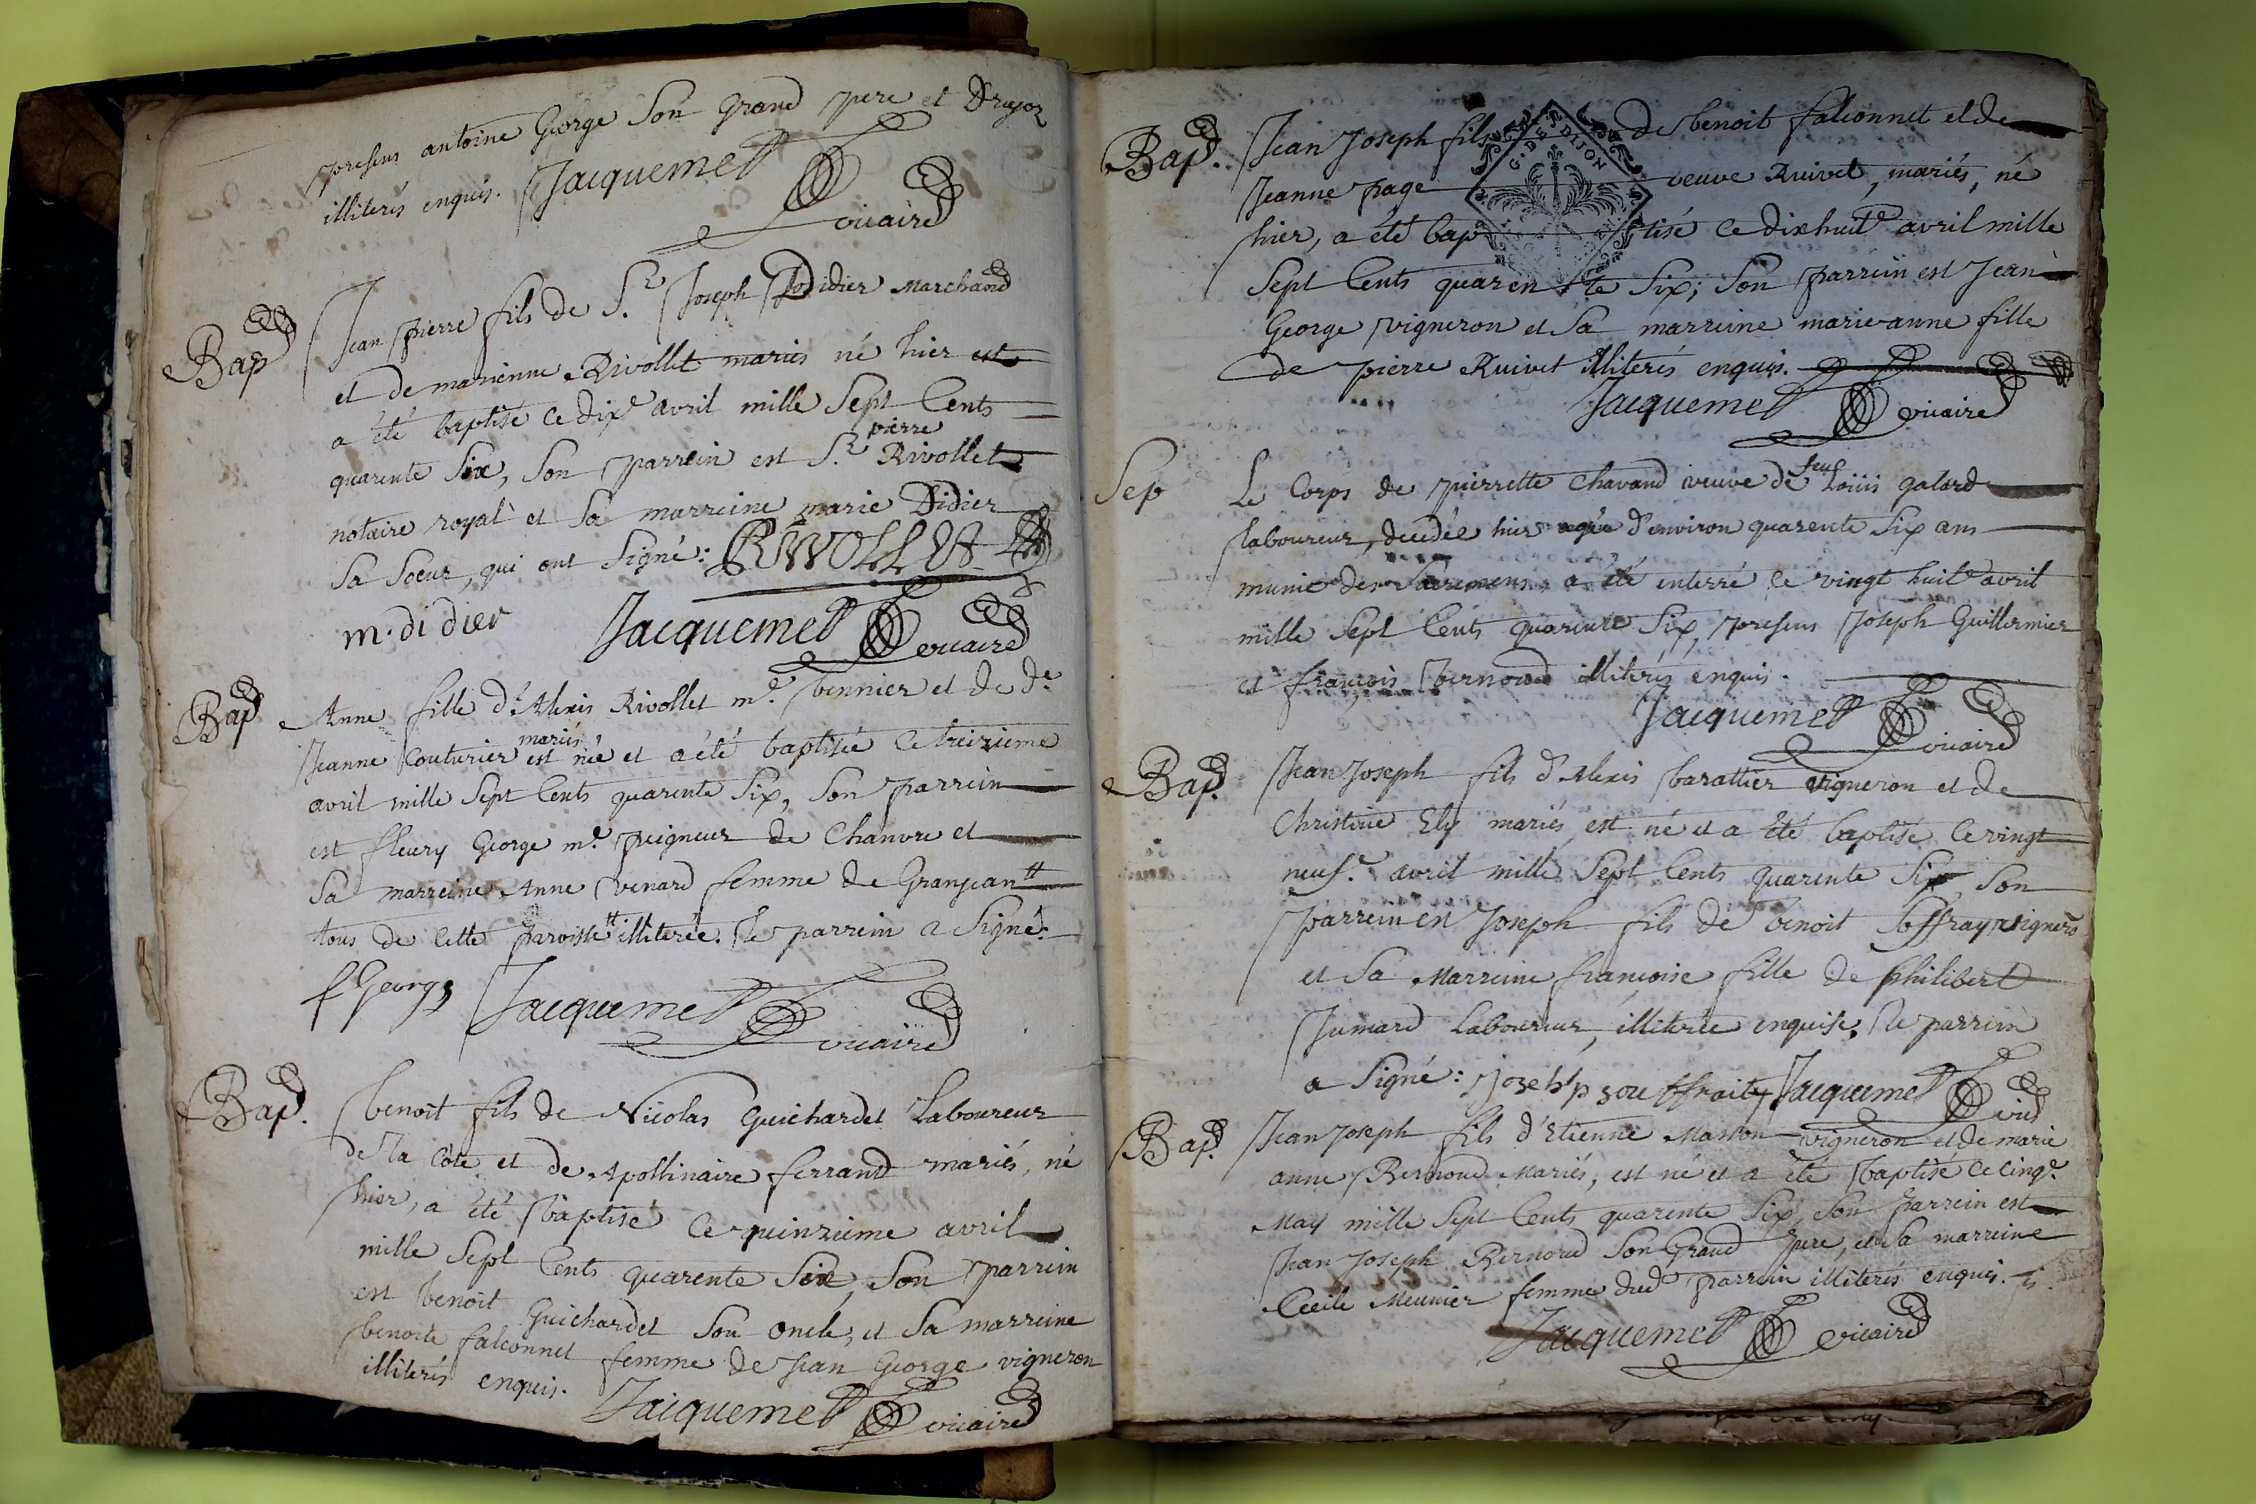 presens antoine George Son Grand pere et
illiterés enquis. Jacquemet vicaire
Bap
Jean pierre fils de S.r Joseph Didier Marchand
et de marienne Rivollet mariés né hier est
a été baptisé ce dix.e avril mille Sept Cents
quarente Six, Son parrein est S.r pierre Rivollet
notaire royal et Sa marreine marie Didier
Sa Soeur, qui ont Signé: RIVOLLET
m. didier Jacquemet vicaire
Bap
Anne fille d'Alexis Rivollet m.e bennier et de d.e
Jeanne Couturier mariés, est née et a été baptisée Ce treizieme
avril mille Sept Cents quarente Six, Son parrein
est fleury George m.e peigneur de Chanvre et
Sa marreine Anne venard femme de Granjean tt
tous de Cette paroisse tt illiterée. Le parrein a Signé:
f George Jacquemet vicaire
Bap.
benoit fils de Nicolas Guichardet Laboureur
de la Côte et de Apollinaire ferrand mariés, né
hier, a été baptisé Ce quinzieme avril
mille Sept Cents quarente Six, Son parrein
est benoit Guichardet Son oncle, et Sa marreine
benoite falconnet femme de Jean George vigneron
illiterés enquis. Jacquemet vicaire
G. DE DIJON
Bap.
Jean Joseph fils de benoit falconnet et de
Jeanne page veuve Ruivet, mariés, né
hier, a été baptisé Ce dixhuit.e avril mille
Sept Cents quarente Six; Son parrein est Jean
George vigneron et Sa marreine marieanne fille
de pierre Ruivet illiterés enquis.
Jacquemet vicaire
Sep
Le Corps de pierrette Chavand veuve de feu Loüis galard
laboureur, decedée hier agée d'environ quarente Six ans
munie des Sacremens a été enterré Ce vingt huit.e avril
mille Sept Cents quarente Six, presens Joseph Guillermier
et françois bernoud illiterés enquis.
Jacquemet vicaire
Bap.
Jean Joseph fils d'Alexis barattier vigneron et de
Christine Ely mariés est né et a été baptisé Ce vingt
neuf.e avril mille Sept Cents quarente Six, Son
parrein en Joseph fils de benoit Soffray vignerõ
et Sa Marreine francoise fille de philibert
Jumard Laboureur, illiterée enquise, Le parrein
a Signé: joseh'p souffraity Jacquemet vic
Bap.
Jean Joseph fils d'Etienne Masson vigneron et de marie
anne Bernoud Mariés, est né et a été baptisé Ce Cinq.e
May mille Sept Cents quarente Six, Son parrein est
Jean Joseph Bernoud Son Grand pere, et Sa marreine
Cecile Meunier femme dud parrein illiterés enquis.
Jacquemet vicaire